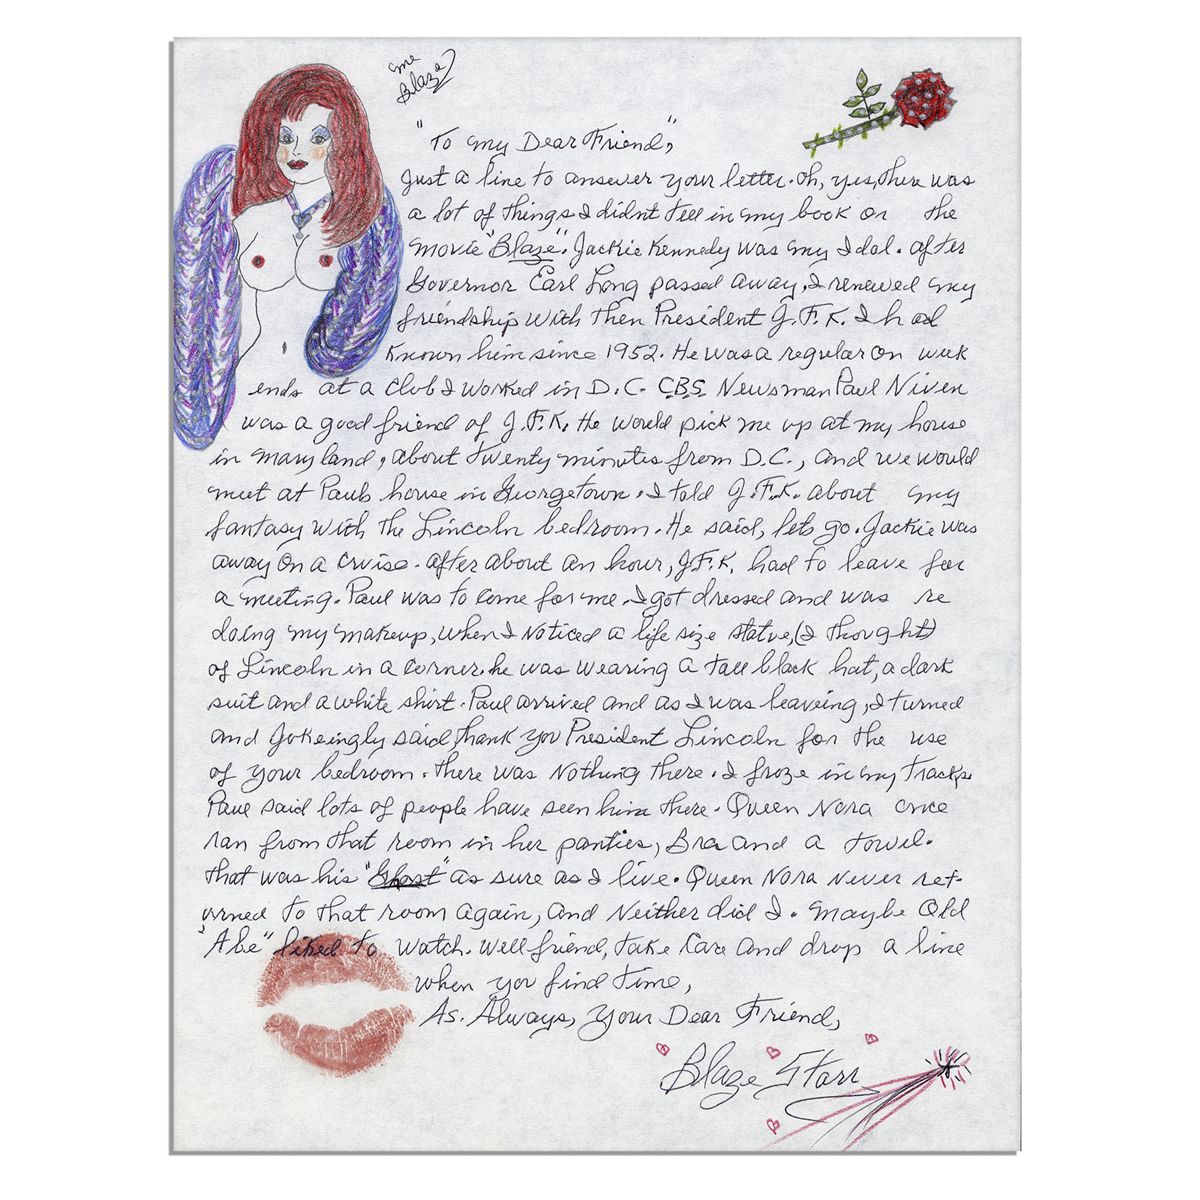 me
Blaze
"To my Dear Friend",
Just a line to answer your letter. Oh, yes, there was
a lot of things I didnt tell in my book or the
movie "Blaze". Jackie Kennedy was my Idal. after
Governor Earl Long passed away, I renewed my
friendship with then President J.F.K. I had
Known him since 1952. He was a regular on week
ends at a club I worked in D.C. CBS Newsman Paul Niven
was a good friend of J.F.K. He would pick me up at my house
in maryland, about twenty minutes from D.C., and we would
meet at Pauls house in Georgetown. I told J.F.K. about my
fantasy with the Lincoln bedroom. He said, lets go. Jackie was
away on a cruise. after about an hour, J.F.K. had to leave for
a meeting. Paul was to come for me. I got dressed and was re
doing my makeup, when I noticed a life size statue, (I thought)
of Lincoln in a corner. he was wearing a tall black hat, a dark
suit and a white shirt. Paul arrived and as I was leaveing, I turned
and Jokeingly said, thank you President Lincoln for the use
of your bedroom. there was nothing there. I froze in my tracks.
Paul said lots of people have seen him there. Queen Nora once
ran from that room in her panties, Bra and a towel.
that was his "Ghost" as sure as I live. Queen Nora never ret-
urned to that room again, and neither did I. maybe Old
"Abe" liked to watch. Well friend, take care and drop a line
when you find time,
As. Always, your Dear Friend,
Blaze Starr